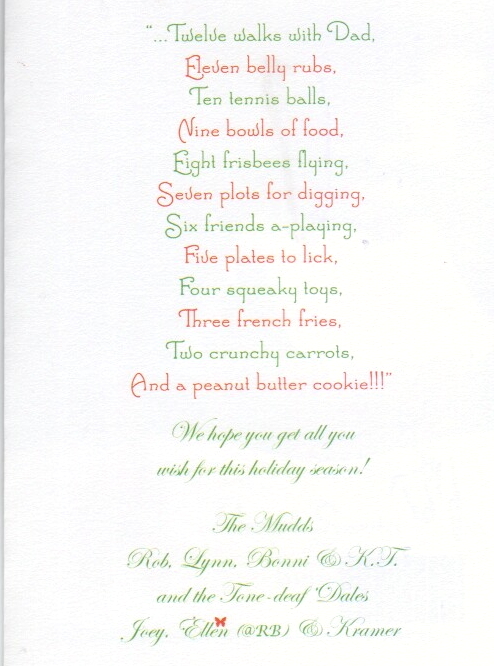 "...Twelve walks with Dad,
Eleven belly rubs,
Ten tennis balls,
Nine bowls of food,
Eight frisbees flying,
Seven plots for digging,
Six friends a-playing,
Five plates to lick,
Four squeaky toys,
Three french fries,
Two crunchy carrots,
And a peanut butter cookie!!!"
We hope you get all you
wish for this holiday season!
The Mudds
Rob, Lynn, Bonni & K.T.
and the Tone-deaf 'Dales
Joey, Ellen (@RB) & Kramer